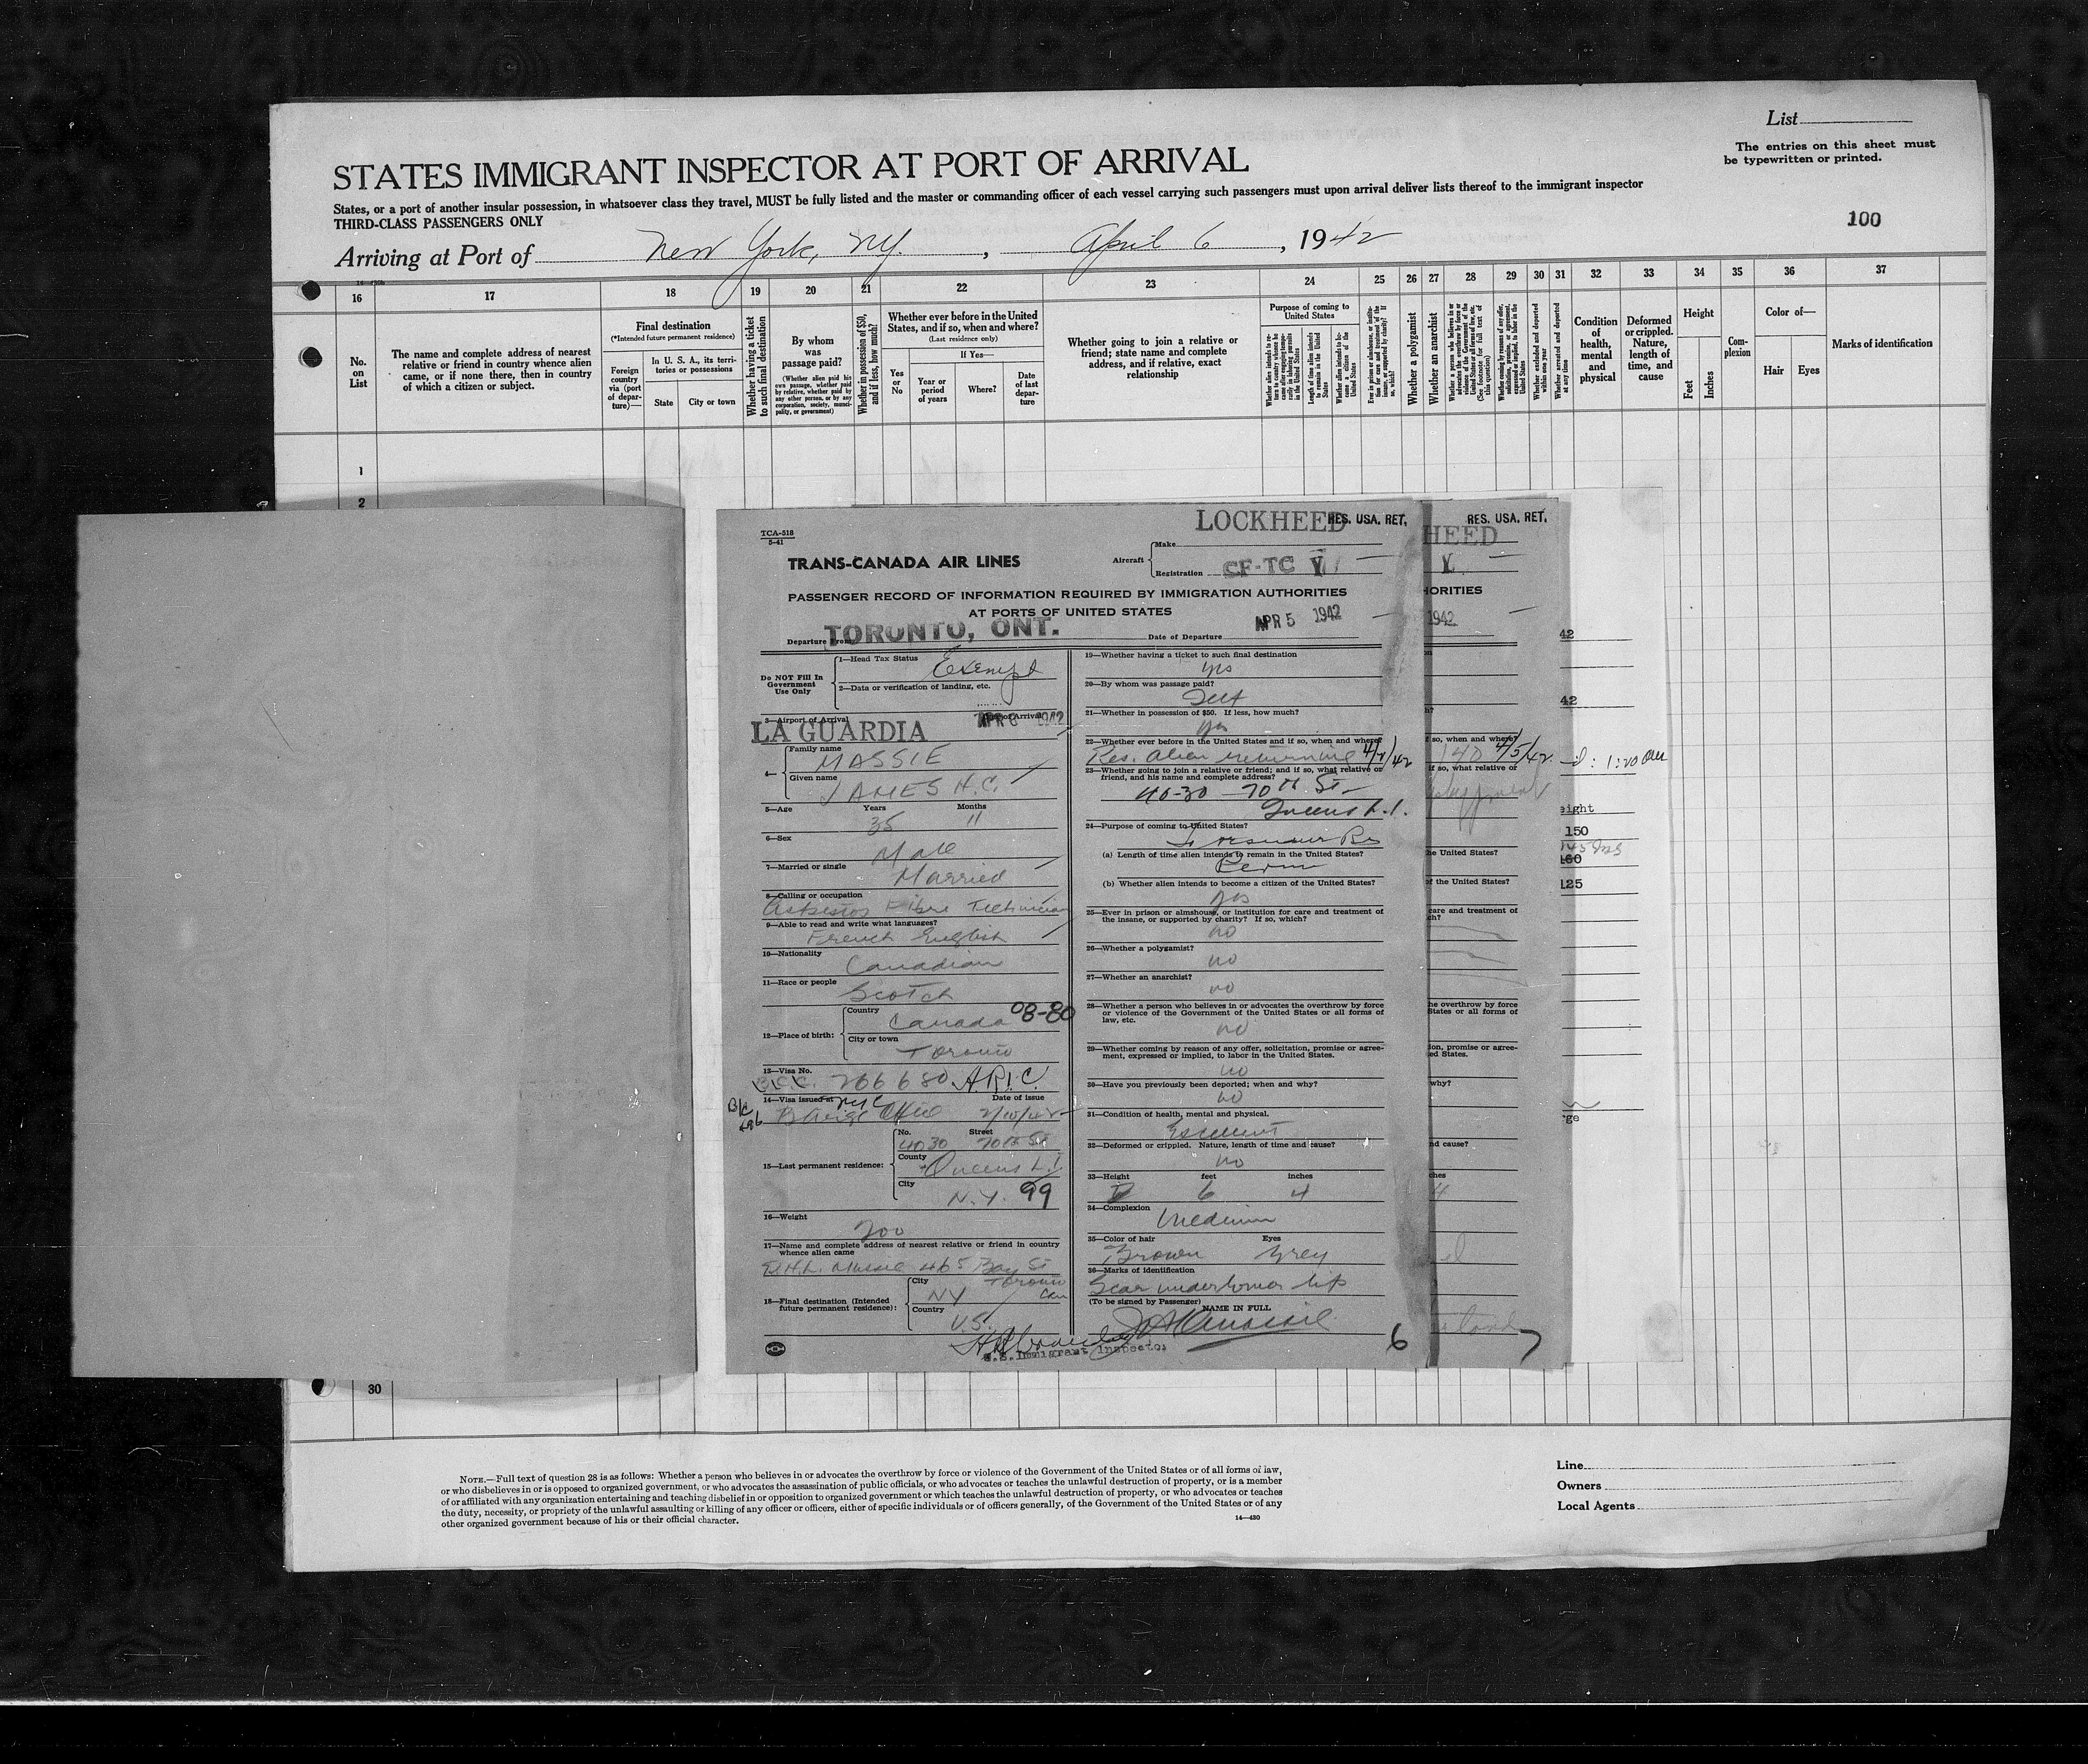 List
The entries on this sheet must
be typewritten or printed.
STATES IMMIGRANT INSPECTOR AT PORT OF ARRIVAL
States, or a port of another insular possession, in whatsoever class they travel, MUST be fully listed and the master or commanding officer of each vessel carrying such passengers must upon arrival deliver lists thereof to the immigrant inspector
THIRD-CLASS PASSENGERS ONLY
100
Arriving at Port of New York, NY. , April 6 , 1942
16 17 18 19 20 21 22 23 24 25 26 27 28 29 30 31 32 33 34 35 36 37
No. on List
The name and complete address of nearest
relative or friend in country whence alien
came, or if none there, then in country
of which a citizen or subject.
Final destination
(*Intended future permanent residence)
Foreign
country
via (port
of depar-
ture)—
In U. S. A., its terri-
tories or possessions
State City or town
Whether having a ticket
to such final destination
By whom
was
passage paid?
(Whether alien paid his
own passage, whether paid
by relative, whether paid by
any other person, or by any
corporation, society, munici-
pality, or government)
Whether in possession of $50,
and if less, how much?
Whether ever before in the United
States, and if so, when and where?
(Last residence only)
If Yes—
Yes
or
No
Year or
period
of years
Where?
Date
of last
depar-
ture
Whether going to join a relative or
friend; state name and complete
address, and if relative, exact
relationship
Purpose of coming to
United States
Whether a polygamist
Whether an anarchist
Condition
of
health,
mental
and
physical
Deformed
or crippled.
Nature,
length of
time, and
cause
Height
Feet Inches
Com-
plexion
Color of—
Hair Eyes
Marks of identification
1
2
TCA-518
5-41
LOCKHEED RES. USA. RET.
TRANS-CANADA AIR LINES
Aircraft
Make
Registration CF-TC
PASSENGER RECORD OF INFORMATION REQUIRED BY IMMIGRATION AUTHORITIES
AT PORTS OF UNITED STATES
Departure From TORONTO, ONT. Date of Departure APR 5 1942
Do NOT Fill In
Government
Use Only
1—Head Tax Status Exempt
2—Data or verification of landing, etc.
3—Airport of Arrival LA GUARDIA
Date of Arrival APR 1942
4—
Family name MASSIE
Given name JAMES H.C.
5—Age Years 35 Months 11
6—Sex Male
7—Married or single Married
8—Calling or occupation
Asbestos Fibre Technician
9—Able to read and write what languages?
French English
10—Nationality Canadian
11—Race or people Scotch
12—Place of birth:
Country Canada 08-80
City or town Toronto
13—Visa No. 266680
14—Visa issued at NYC Barge Office Date of issue
15—Last permanent residence:
No. 4030 Street 70th St
County Queens L.I.
City N.Y. 99
16—Weight 200
17—Name and complete address of nearest relative or friend in country
whence alien came
Massie 465 Bay St
Toronto
Can
18—Final destination (Intended
future permanent residence):
City NY
Country U.S.
U.S. Immigrant Inspector
19—Whether having a ticket to such final destination
yes
20—By whom was passage paid?
Self
21—Whether in possession of $50. If less, how much?
yes
22—Whether ever before in the United States and if so, when and where?
Res. alien returning
23—Whether going to join a relative or friend; and if so, what relative or
friend, and his name and complete address?
40-30 — 70th St —
Queens L.I.
24—Purpose of coming to United States?
(a) Length of time alien intends to remain in the United States?
Perm
(b) Whether alien intends to become a citizen of the United States?
yes
25—Ever in prison or almshouse, or institution for care and treatment of
the insane, or supported by charity? If so, which?
no
26—Whether a polygamist?
no
27—Whether an anarchist?
no
28—Whether a person who believes in or advocates the overthrow by force
or violence of the Government of the United States or all forms of
law, etc.
no
29—Whether coming by reason of any offer, solicitation, promise or agree-
ment, expressed or implied, to labor in the United States.
no
30—Have you previously been deported; when and why?
no
31—Condition of health, mental and physical.
Excellent
32—Deformed or crippled. Nature, length of time and cause?
no
33—Height feet 6 inches 4
34—Complexion Medium
35—Color of hair Brown Eyes Grey
36—Marks of identification
Scar under lower lip
(To be signed by Passenger) NAME IN FULL
6
RES. USA. RET.
HEED
HORITIES
1942
so, when and where?
4/5/42
if so, what relative or
he United States?
of the United States?
care and treatment of
ch?
he overthrow by force
States or all forms of
ion, promise or agree-
ed States.
why?
nd cause?
ches
7
42
42
eight
150
160
125
rge
30
NOTE.—Full text of question 28 is as follows: Whether a person who believes in or advocates the overthrow by force or violence of the Government of the United States or of all forms of law,
or who disbelieves in or is opposed to organized government, or who advocates the assassination of public officials, or who advocates or teaches the unlawful destruction of property, or is a member
of or affiliated with any organization entertaining and teaching disbelief in or opposition to organized government or which teaches the unlawful destruction of property, or who advocates or teaches
the duty, necessity, or propriety of the unlawful assaulting or killing of any officer or officers, either of specific individuals or of officers generally, of the Government of the United States or of any
other organized government because of his or their official character.
14—430
Line
Owners
Local Agents